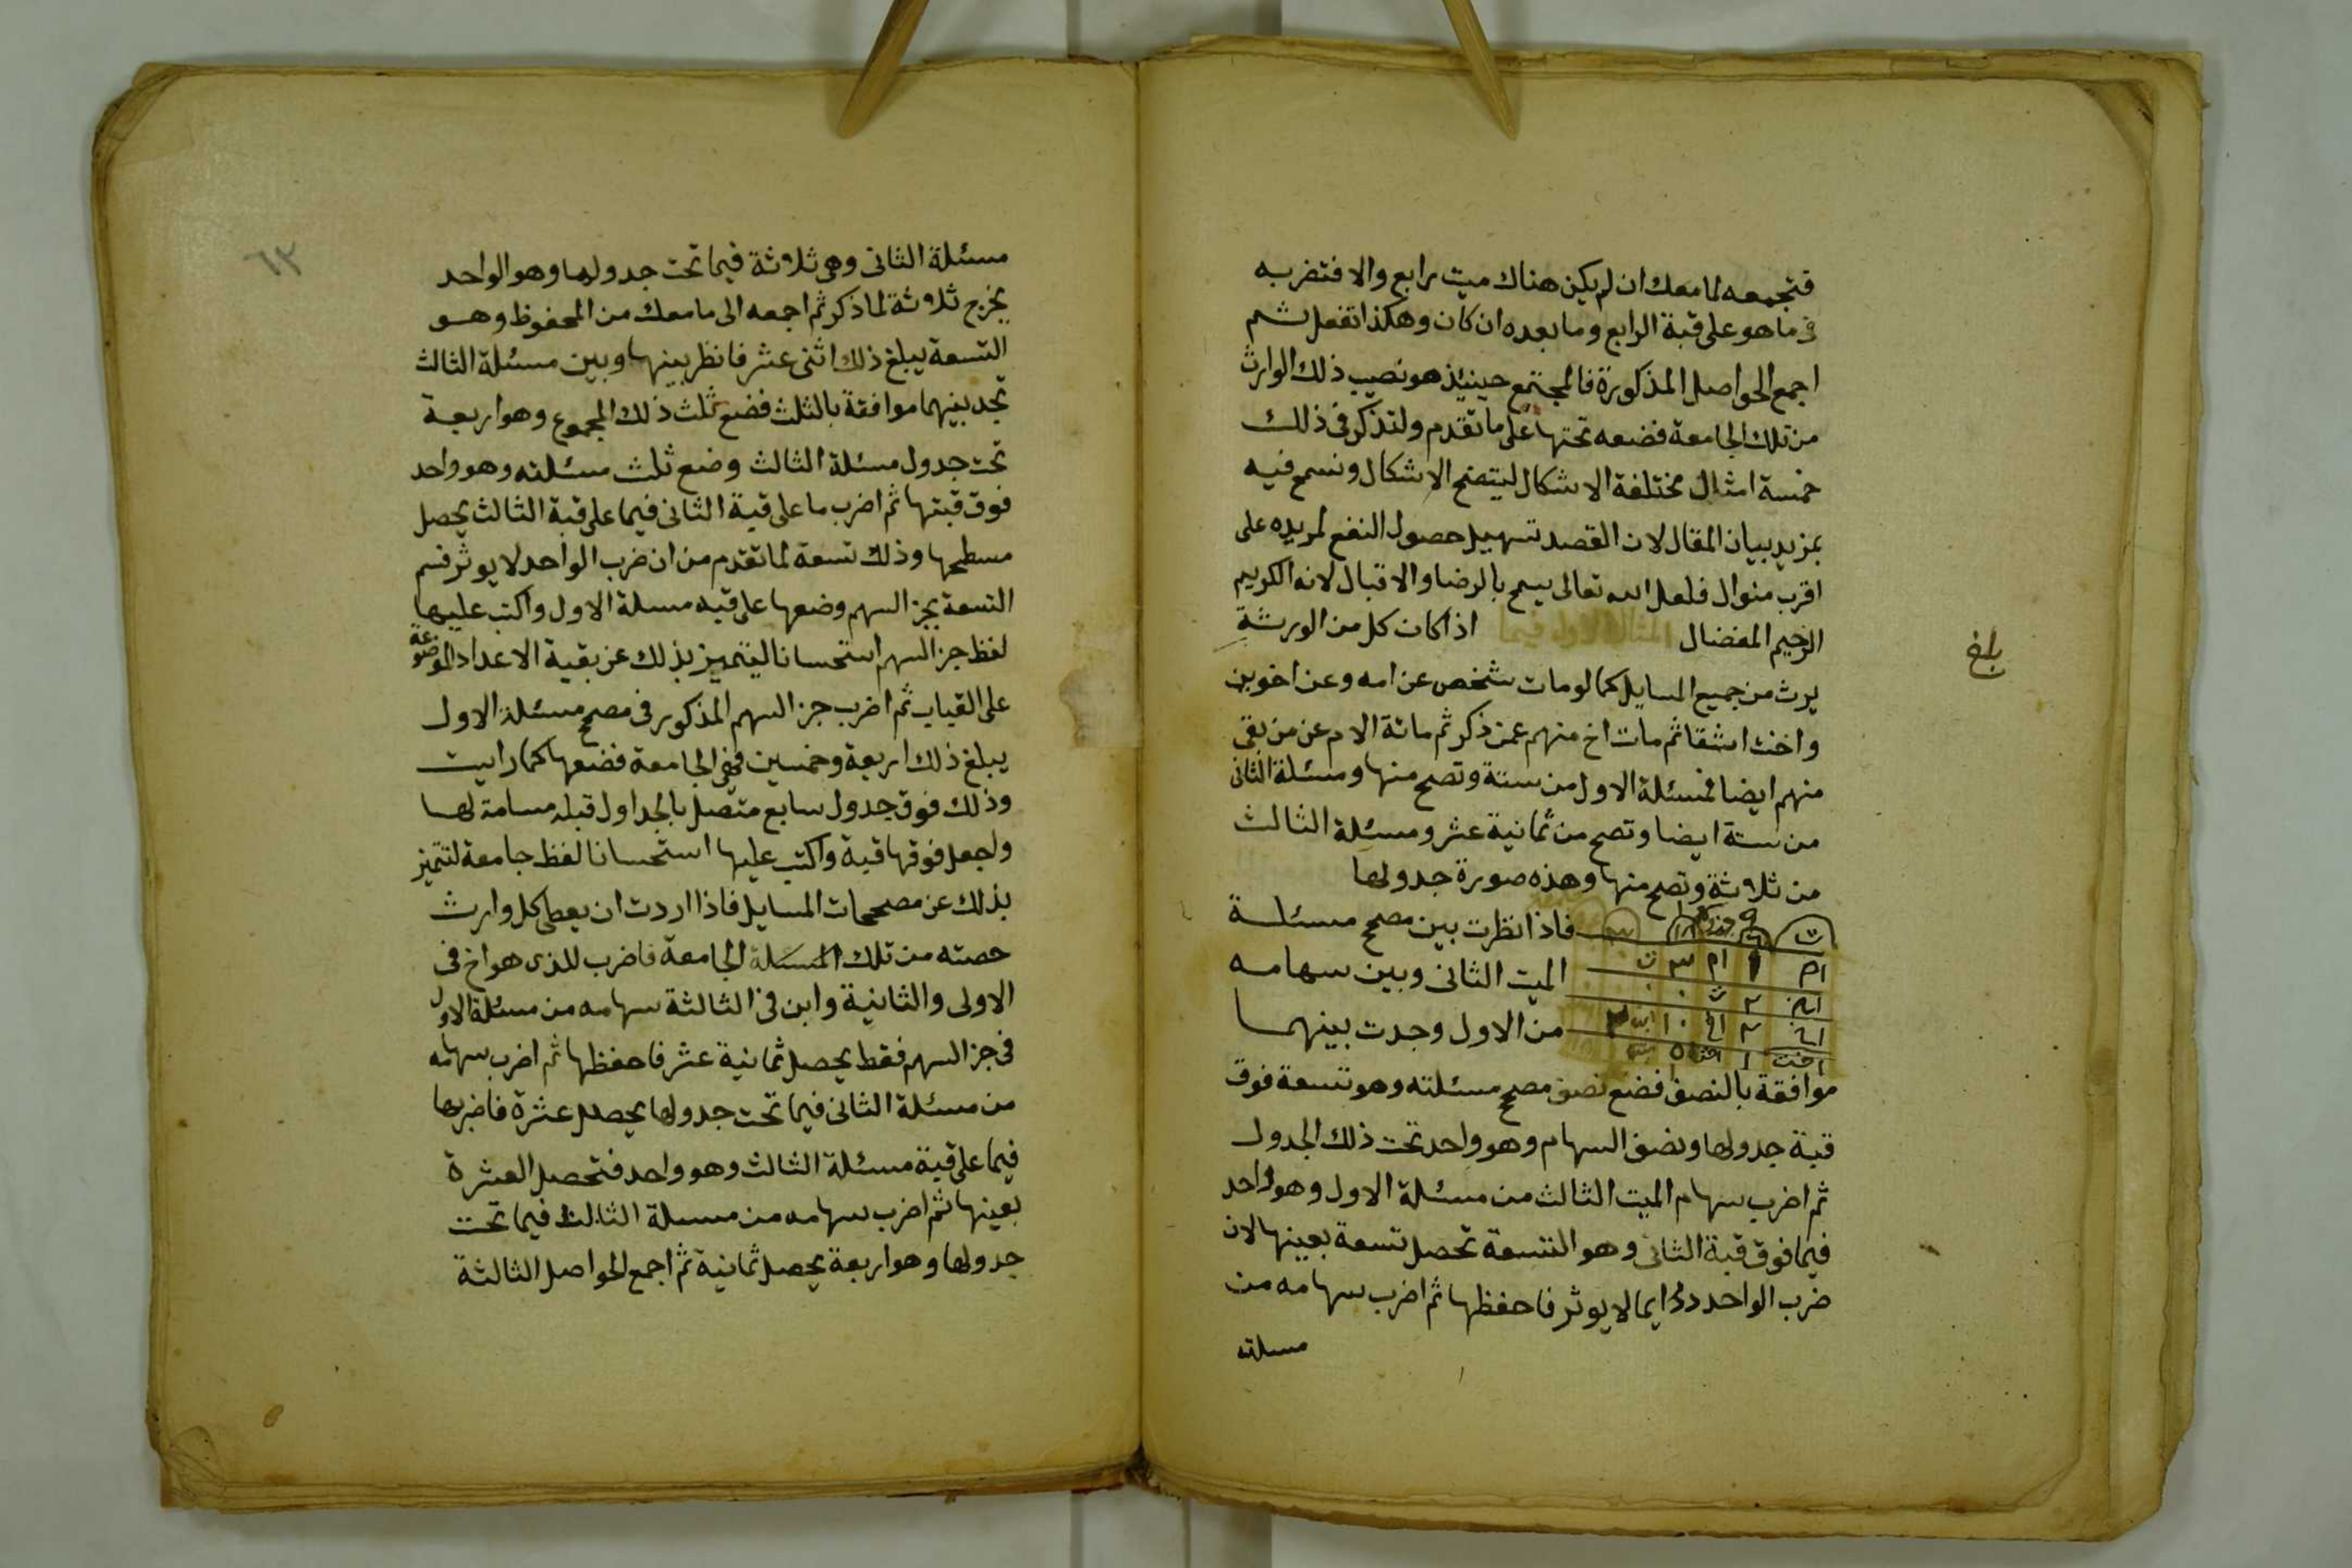 فتجمعه لما معك ان لم يكن هناك ميت رابع والا فتضربه
فى ما هو على قبة الرابع وما بعده ان كان وهكذا تفعل ثم
اجمع الحواصل المذكورة فالمجتمع حينئذ هو نصيب ذلك الوارث
من تلك الجامعة فضعه تحتها على ما تقدم ولنذكر فى ذلك
خمسة امثال مختلفة الاشكال ليتضح الاشكال ونسمح فيه
بمزيد بيان المقال لان القصد تسهيل حصول النفع لمريده على
اقرب منوال فلعل الله تعالى يسمح بالرضا والاقبال لانه الكريم
الرحيم المفضال المثال الاول فيما اذا كان كل من الورثة
يرث من جميع المسايل كما لو مات شخص عن امه وعن اخوين
واخت اشقا ثم مات اخ منهم عمن ذكر ثم ماتة الام عن من بقى
منهم ايضا فمسئلة الاول من ستة وتصح منها ومسئلة الثانى
من ستة ايضا وتصح من ثمانية عشر ومسئلة الثالث
من ثلاثة وتصح منها وهذه صورة جدولها
فاذا نظرت بين مصحح مسئلة
الميت الثانى وبين سهامه
من الاول وجدت بينهما
موافقة بالنصف فضع نصف مصحح مسئلته وهو تسعة فوق
قبة جدولها ونصف السهام وهو واحد تحت ذلك الجدول
ثم اضرب سهام الميت الثالث من مسئلة الاول وهو واحد
فيما فوق قبة الثانى وهو التسعة تحصل تسعة بعينها لان
ضرب الواحد دايما لا يوثر فاحفظها ثم اضرب سهامه من
مسلته
بلغ
٦٣
مسئلة الثانى وهى ثلاثة فيما تحت جدولها وهو الواحد
يخرج ثلاثة لما ذكر ثم اجمعه الى ما معك من المحفوظ وهو
التسعة يبلغ ذلك اثنى عشر فانظر بينها وبين مسئلة الثالث
تجد بينهما موافقة بالثلث فضع ثلث ذلك المجموع وهو اربعة
تحت جدول مسئلة الثالث وضع ثلث مسئلته وهو واحد
فوق قبتها ثم اضرب ما على قبة الثانى فيما على قبة الثالث يحصل
مسطحها وذلك تسعة لما تقدم من ان ضرب الواحد لا يوثر فسم
التسعة بجز السهم وضعها على قبه مسلة الاول واكتب عليها
لفظ جز السهم استحسانا ليتميز بذلك عن بقية الاعداد الموضوعة
على القباب ثم اضرب جز السهم المذكور فى مصحح مسئلة الاول
يبلغ ذلك اربعة وخمسين فهى الجامعة فضعها كما رايت
وذلك فوق جدول سابع متصل بالجداول قبله مسامة لها
واجعل فوقها قبة واكتب عليها استحسانا لفظ جامعة لتتميز
بذلك عن مصححات المسايل فاذا اردت ان يعطى كل وارث
حصته من تلك المسئلة الجامعة فاضرب للذى هو اخ فى
الاولى والثانية وابن فى الثالثة سهامه من مسئلة الاول
فى جز السهم فقط يحصل ثمانية عشر فاحفظها ثم اضرب سهامه
من مسئلة الثانى فيما تحت جدولها يحصل عشرة فاضربها
فيما على قبة مسئلة الثالث وهو واحد فتحصل العشرة
بعينها ثم اضرب سهامه من مسلة الثالث فيما تحت
جدولها وهو اربعة يحصل ثمانية ثم اجمع الحواصل الثالثة